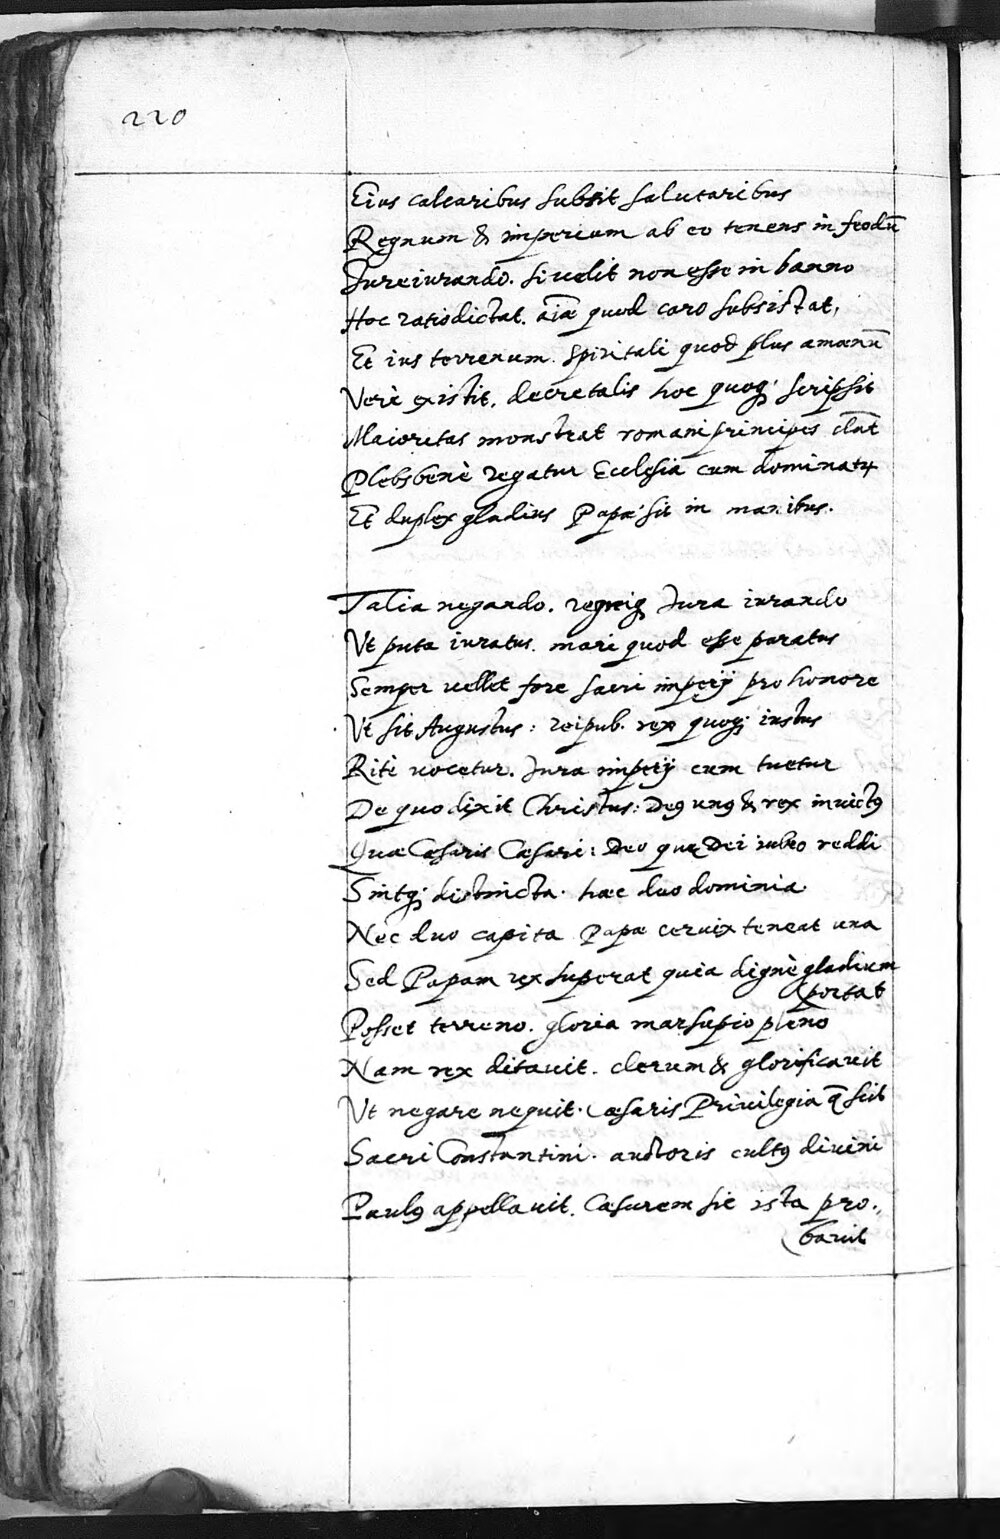 220
Eius calcaribus subsit salutaribus
Regnum & imperium ab eo tenens in feodū
Jureiurando. si uelit non esse in banno
Hoc ratio dictat. aīa quod caro subsistat,
Et ius terrenum. spiritali quod plus amœnū
Verè existit, decretalis hoc quoq; scripsit
Maioritas monstrat romani principis
Plebs benè regatur Ecclesia cum dominatr
Et duplex gladius Papæ sit in manibus.
Talia negando. regniq; Jura iurando
Vt puta iuratus. mari quod esse paratus
Semper uellet fore sacri imperij pro honore
Vt sit Augustus: reipub. rex quoq; iustus
Ritè uocetur. Jura imperij cum tuetur
De quo dixit Christus: Deq unq & rex inuictq
Quæ Cæsaris Cæsari: Deo quę Dei iubeo reddi
Sintq; distincta. hæc duo dominia.
Nec duo capita Papæ ceruix teneat una
Sed Papam rex superat quia dignè gladium
portat
Posset terreno. gloria marsupio pleno
Nam rex ditauit. clerum & glorificauit
Vt negare nequit. Cæsaris Priuilegia q̄ scit
Sacri Constantini. auctoris cultq diuini
Paulq appellauit. Cæsarem sic ista pro.,
bauit